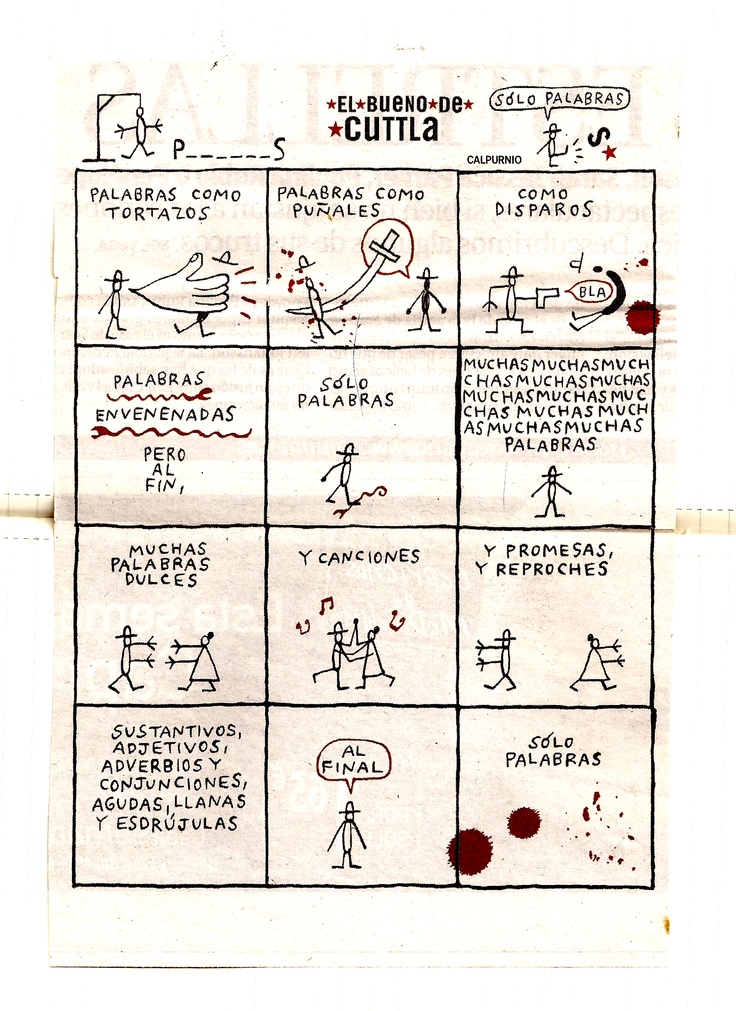 P______S
★EL★BUENO★DE★
★CUTTLA
CALPURNIO
SÓLO PALABRAS
S
PALABRAS COMO
TORTAZOS
PALABRAS COMO
PUÑALES
COMO
DISPAROS
BLA
PALABRAS
ENVENENADAS
PERO
AL
FIN,
SÓLO
PALABRAS
MUCHASMUCHASMUCH
CHASMUCHASMUCHAS
MUCHASMUCHASMUC
CHAS MUCHAS MUCH
AS MUCHASMUCHAS
PALABRAS
MUCHAS
PALABRAS
DULCES
Y CANCIONES
Y PROMESAS,
Y REPROCHES
SUSTANTIVOS,
ADJETIVOS,
ADVERBIOS Y
CONJUNCIONES,
AGUDAS, LLANAS
Y ESDRÚJULAS
AL
FINAL
SÓLO
PALABRAS